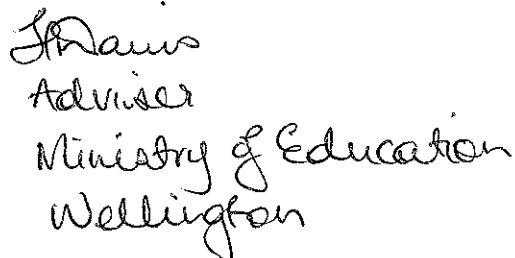 Davis
Adviser
Ministry of Education
Wellington